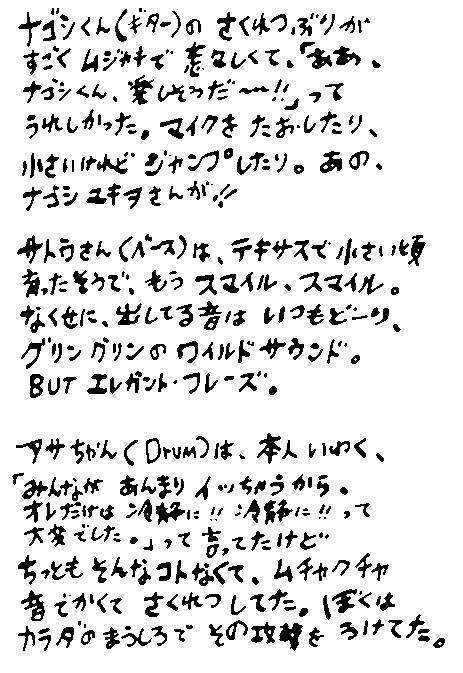 ナゴシくん(ギター)の さくれつぶりが
すごく ムジャキで 裏なしくて、「ああ、
ナゴシくん、楽しそうだ〜!!」って
うれしかった。マイクを たおしたり、
小さいけれど ジャンプしたり。あの、
ナゴシ ユキヲさんが!!
サトウさん(ベース)は、テキサスで小さい頃
育ったそうで、もう スマイル、スマイル。
なくせに、出してる音は いつもどーり、
グリングリンの ワイルドサウンド。
BUT エレガント・フレーズ。
アサちゃん(DRUM)は、本人いわく、
「みんなが あんまり イッちゃうから。
オレだけは 冷静に!! 冷静に!! って
大変でした。」って 言ってたけど
ちっとも そんなコトなくて、ムチャクチャ
音でかくて さくれつしてた。ぼくは
カラダのまうしろで その攻撃を うけてた。